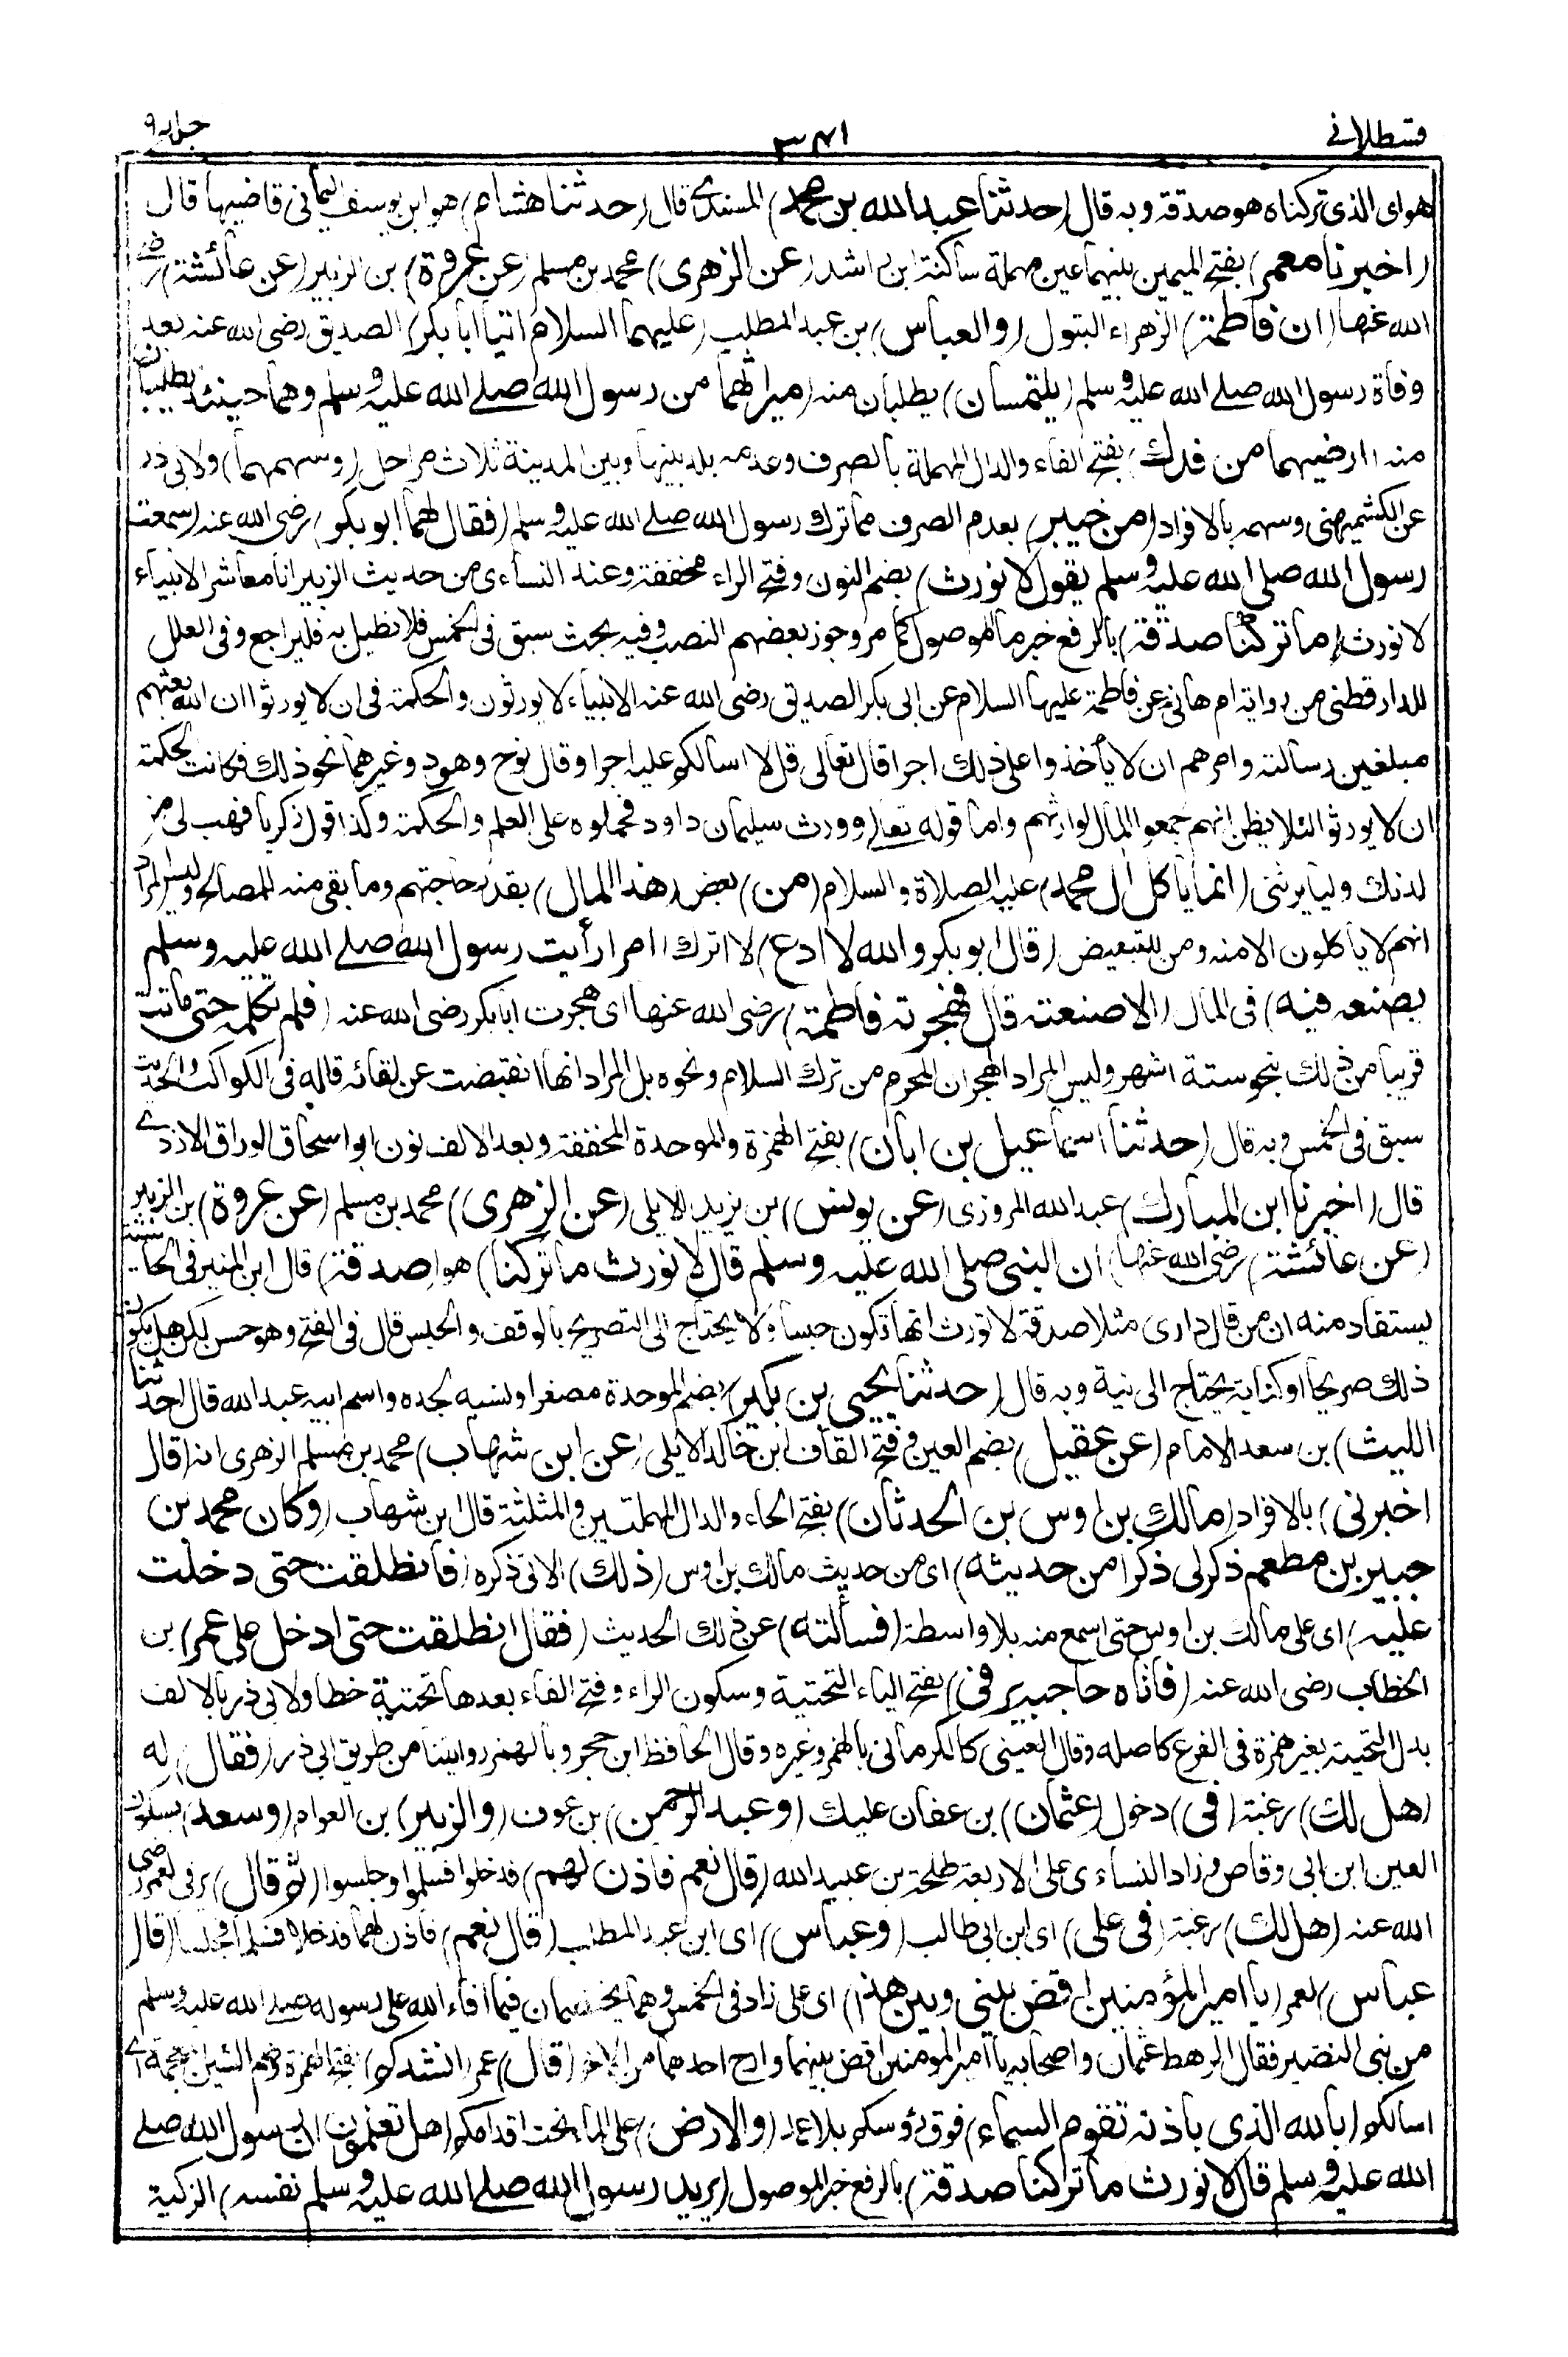 قسطلانے
٣٤١
جلد ٩
هو اى الذى تركناه هو صدقة وبه قال (حدثنا عبد الله بن محمد) المسندے قال (حدثنا هشام) هو ابن يوسف اليمانى قاضيها قال
(اخبرنا معمر) بفتح الميمين بينهما عين مهملة ساكنة ابن راشد (عن الزهرى) محمد بن مسلم (عن عروة) بن الزبير (عن عائشة) رضے
الله عنها (ان فاطمة) الزهراء البتول (والعباس) بن عبد المطلب (عليهما السلام اتيا ابا بكر) الصديق رضى الله عنه بعد
وفاة رسول الله صلے الله عليه وسلم (يلتمسان) يطلبان منه (ميراثهما من رسول الله صلے الله عليه وسلم وهما حينئذ يطلبان
منه ارضيهما من فدك) بفتح الفاء والدال المهملة بالصرف وعدمه بلد بينها وبين المدينة ثلاث مراحل (وسهمهما) ولابى ذر
عن الكشميهنى وسهمه بالافراد (من خيبر) بعدم الصرف مما ترك رسول الله صلے الله عليه وسلم (فقال لهما ابو بكر) رضى الله عنه (سمعت
رسول الله صلى الله عليه وسلم يقول لا نورث) بضم النون وفتح الراء مخففة وعند النساءى من حديث الزبير انا معاشر الانبياء
لا نورث (ما تركنا صدقة) بالرفع خبر ما الموصول كما مر وجوز بعضهم النصب وفيه بحث سبق فى الخمس فلا نطيل به فليراجع وفى العلل
للدارقطنى من رواية ام هانئ عن فاطمة عليها السلام عن ابى بكر الصديق رضى الله عنه الانبياء لا يورثون والحكمة فى ان لا يورثوا ان الله بعثهم
مبلغين رسالته وامرهم ان لا يأخذوا على ذلك اجرا قال تعالى قل لا اسالكم عليه اجرا وقال نوح وهود وغيرهما نحو ذلك فكانت الحكمة
ان لا يورثوا لئلا يظن انهم جمعوا المال لوارثهم واما قوله تعالے وورث سليمان داود فحملوه على العلم والحكمة وكذا قول زكريا فهب لى من
لدنك وليا يرثنى (انما يأكل آل محمد) عليه الصلاة والسلام (من) بعض (هذا المال) بقدر حاجتهم وما بقى منه للمصالح وليس المراد
انهم لا يأكلون الا منه ومن للتبعيض (قال ابو بكر والله لا ادع) لا اترك (امرا رأيت رسول الله صلے الله عليه وسلم
يصنعه فيه) فى المال (الا صنعته قال فهجرته فاطمة) رضى الله عنها اى هجرت ابا بكر رضى الله عنه (فلم تكلمه حتى ماتت)
قريبا من ذلك بنحو ستة اشهر وليس المراد الهجران المحرم من ترك السلام ونحوه بل المراد انها انقبضت عن لقائه قاله فى الكواكب والحديث
سبق فى الخمس وبه قال (حدثنا اسماعيل بن ابان) بفتح الهمزة والموحدة المخففة وبعد الالف نون ابو اسحاق الوراق الازدے
قال (اخبرنا ابن المبارك) عبد الله المروزى (عن يونس) بن يزيد الايلى (عن الزهرى) محمد بن مسلم (عن عروة) بن الزبير
(عن عائشة) رضى الله عنها (ان النبى صلى الله عليه وسلم قال لا نورث ما تركنا) هو (صدقة) قال ابن المنير فى الحاشية
يستفاد منه ان من قال دارى مثلا صدقة لا تورث انها تكون حبسا ولا يحتاج الى التصريح بالوقف والحبس قال فى الفتح وهو حسن لكن هل يكون
ذلك صريحا او كناية يحتاج الى نية وبه قال (حدثنا يحيى بن بكير) بضم الموحدة مصغرا ونسبه لجده واسم ابيه عبد الله قال (حدثنا
الليث) بن سعد الامام (عن عقيل) بضم العين وفتح القاف ابن خالد الايلى (عن ابن شهاب) محمد بن مسلم الزهرى انه (قال
اخبرنى) بالافراد (مالك بن اوس بن الحدثان) بفتح الحاء والدال المهملتين والمثلثة قال ابن شهاب (وكان محمد بن
جبير بن مطعم ذكر لى ذكرا من حديثه) اى من حديث مالك بن اوس (ذلك) الاتى ذكره (فانطلقت حتى دخلت
عليه) اى على مالك بن اوس حتى اسمع منه بلا واسطة (فسألته) عن ذلك الحديث (فقال انطلقت حتى ادخل على عمر) بن
الخطاب رضى الله عنه (فاتاه حاجبه يرفى) بفتح الياء التحتية وسكون الراء وفتح الفاء بعدها تحتية خطا ولابى ذر بالالف
بدل التحتية بغير همزة فى الفرع كاصله وقال العينى كالكرمانى بالهمز وغيره وقال الحافظ ابن حجر وبالهمز روايتنا من طريق ابى ذر (فقال) له
(هل لك) رغبة (فى) دخول (عثمان) بن عفان عليك (وعبد الرحمن) بن عوف (والزبير) بن العوام (وسعد) بسكون
العين ابن ابى وقاص وزاد النساءى على الاربعة طلحة بن عبيد الله (قال نعم فاذن لهم) فدخلوا فسلموا وجلسوا (ثم قال) يرفى لعمر رضى
الله عنه (هل لك) رغبة (فى على) اى ابن ابى طالب (وعباس) اى ابن عبد المطلب (قال نعم) فاذن لهما فدخلا فسلما فجلسا (قال
عباس) لعمر (يا امير المؤمنين اقض بينى وبين هذا) اى على زاد فى الخمس وهما يختصمان فيما افاء الله على رسوله صلے الله عليه وسلم
من بنى النضير فقال الرهط عثمان واصحابه يا امير المومنين اقض بينهما وارح احدهما من الاخر (قال) عمر (انشدكم) بفتح الهمزة وضم الشين المعجمة اے
اسالكم (بالله الذى باذنه تقوم السماء) فوق رؤسكم بلا عمد (والارض) على الماء تحت اقدامكم (هل تعلمون ان رسول الله صلے
الله عليه وسلم قال لا نورث ما تركنا صدقة) بالرفع خبر الموصول (يريد رسول الله صلے الله عليه وسلم نفسه) الزكية